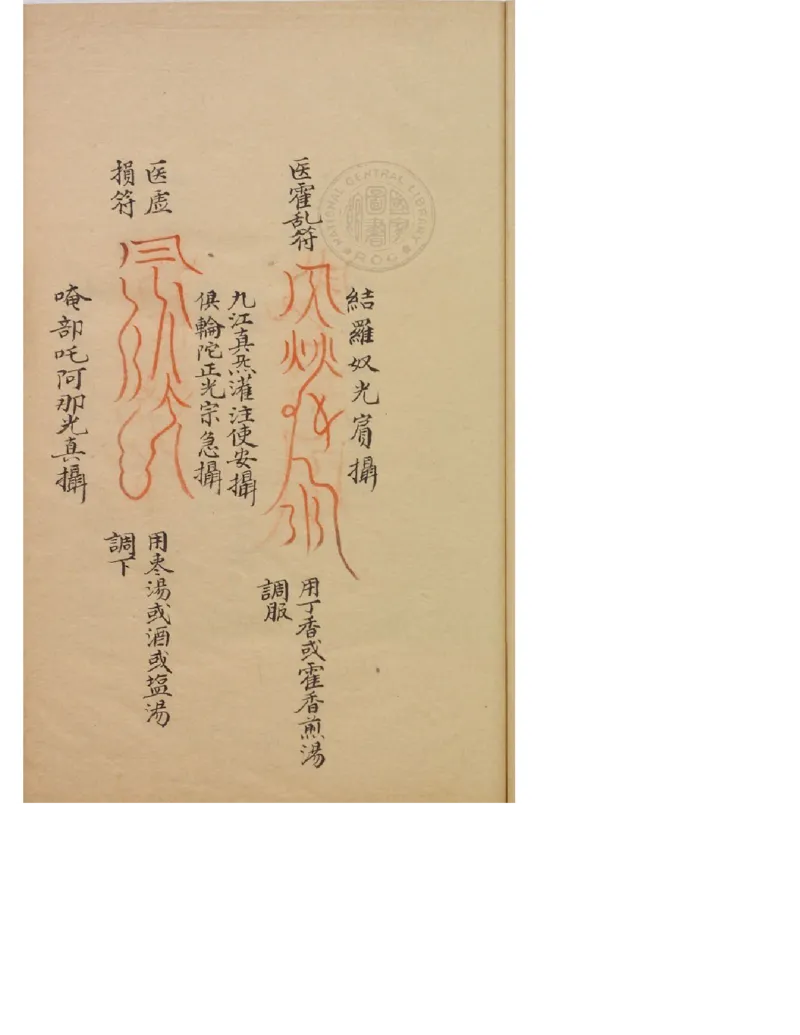 結羅奴光賔攝
医霍乱符
用丁香或霍香煎湯
調服
九江真炁灌注使安攝
俱輪陀正光宗急攝
医虛
損符
用枣湯或酒或塩湯
調下
唵部吒阿那光真攝
NATIONAL CENTRAL LIBRARY
R.O.C
國家圖書館